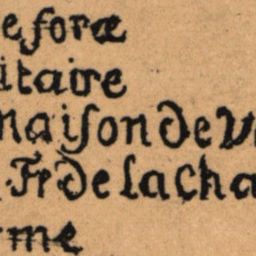 e foræ
itaire
maiſon de V
Fr de la Cha
me